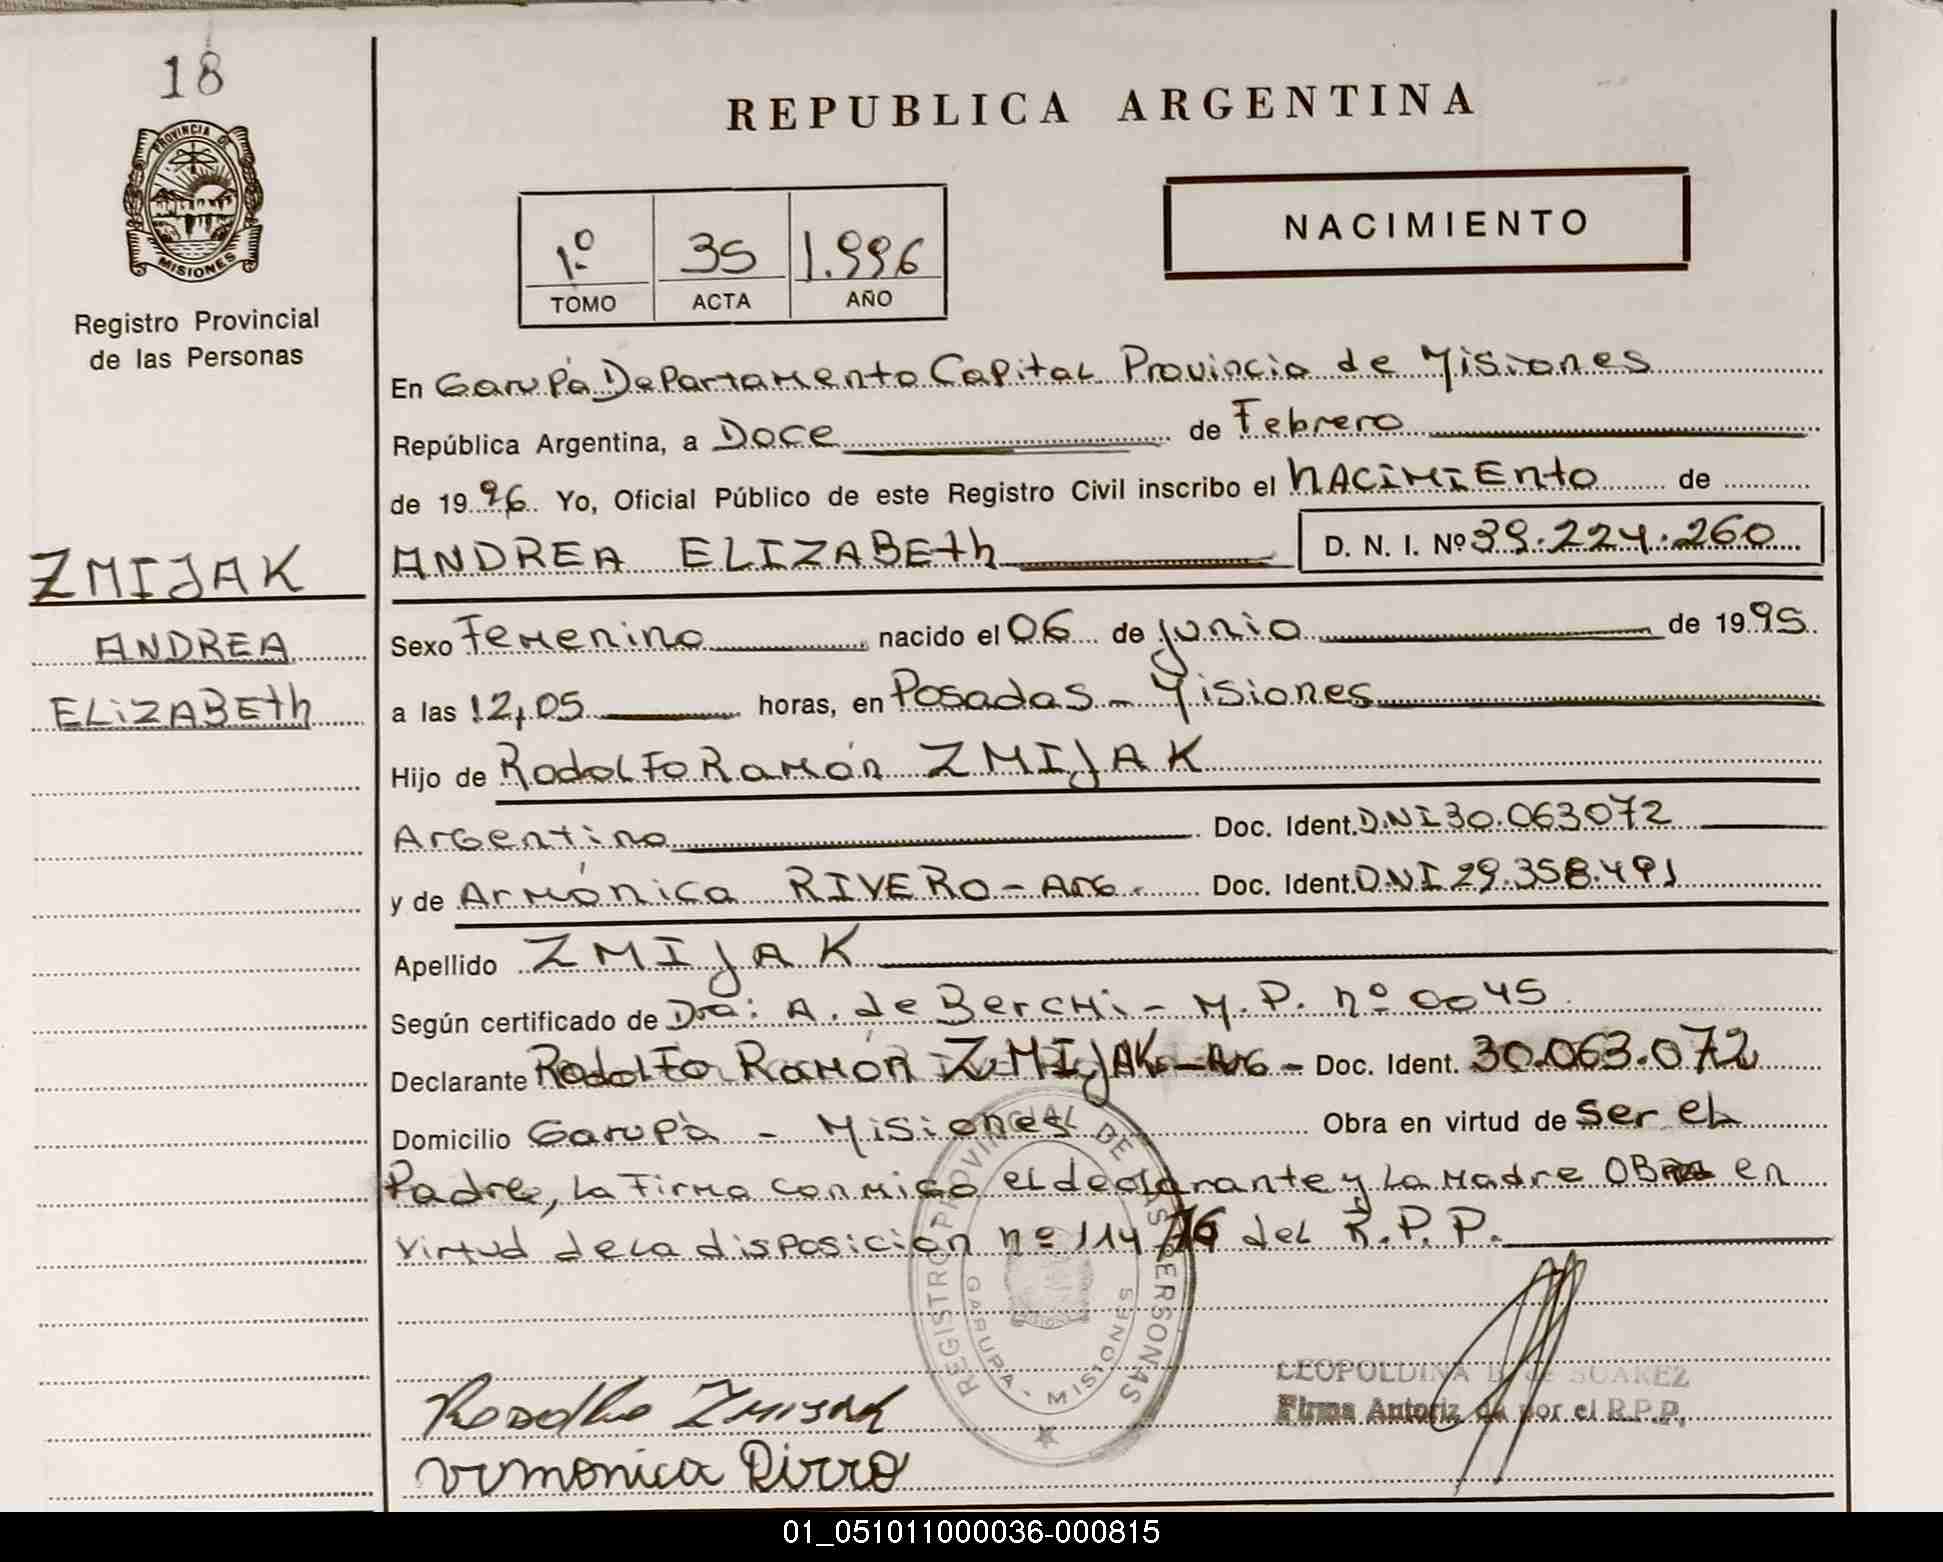 18
PROVINCIA DE
MISIONES
Registro Provincial
de las Personas
ZMIJAK
ANDREA
ELIZABEth
REPUBLICA ARGENTINA
1º 35 1.996
TOMO ACTA AÑO
NACIMIENTO
En Garupá Departamento Capital Provincia de Misiones
República Argentina, a Doce de Febrero
de 1996. Yo, Oficial Público de este Registro Civil inscribo el NACIMIENto de
ANDREA ELIZABEth D. N. I. Nº 39.224.260
Sexo Femenino nacido el 06 de junio de 1995
a las 12,05 horas, en Posadas - Misiones
Hijo de Rodolfo Ramón ZMIJAK
Argentino Doc. Ident. DNI 30.063072
y de Armónica RIVERO - Arg. Doc. Ident. DNI 29.358.491
Apellido ZMIJAK
Según certificado de Dra: A. de Berchi - M.P. nº 0045
Declarante Rodolfo Ramón ZMIJAK - Arg - Doc. Ident. 30.063.072
Domicilio Garupà - Misiones Obra en virtud de ser el
Padre, La Firma conmigo el declarante y La Madre OBra en
virtud de la disposición nº 114/76 del R.P.P.
REGISTRO PROVINCIAL DE LAS PERSONAS
GARUPA - MISIONES
Rodolfo Zmijak
LEOPOLDINA de SUAREZ
Firma Autorizada por el R.P.P.
01_051011000036-000815